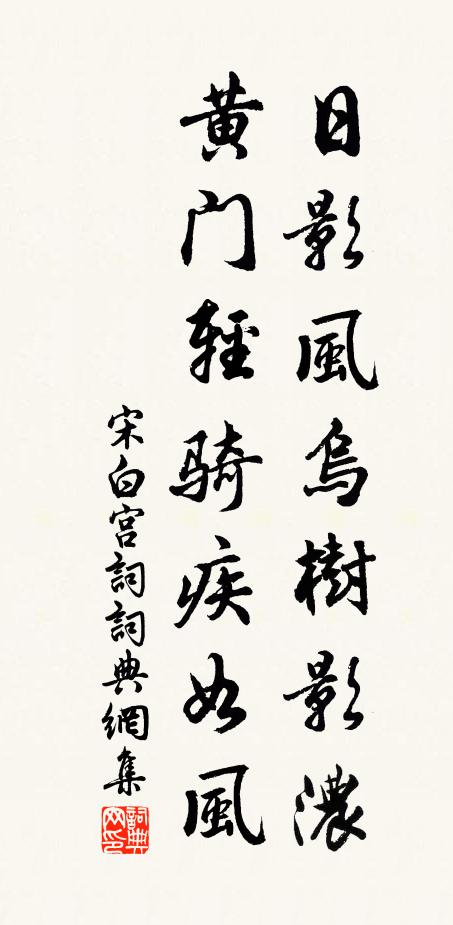 日影風烏樹影濃
黃门輕骑疾如風
宋白宫詞詞典網集
詞典网印